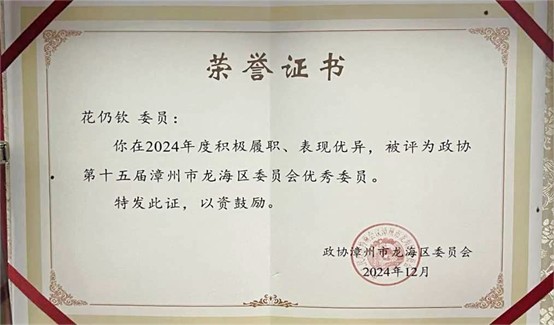 荣誉证书
花仍钦 委员：
你在2024年度积极履职、表现优异，被评为政协
第十五届漳州市龙海区委员会优秀委员。
特发此证，以资鼓励。
政协漳州市龙海区委员会
2024年12月